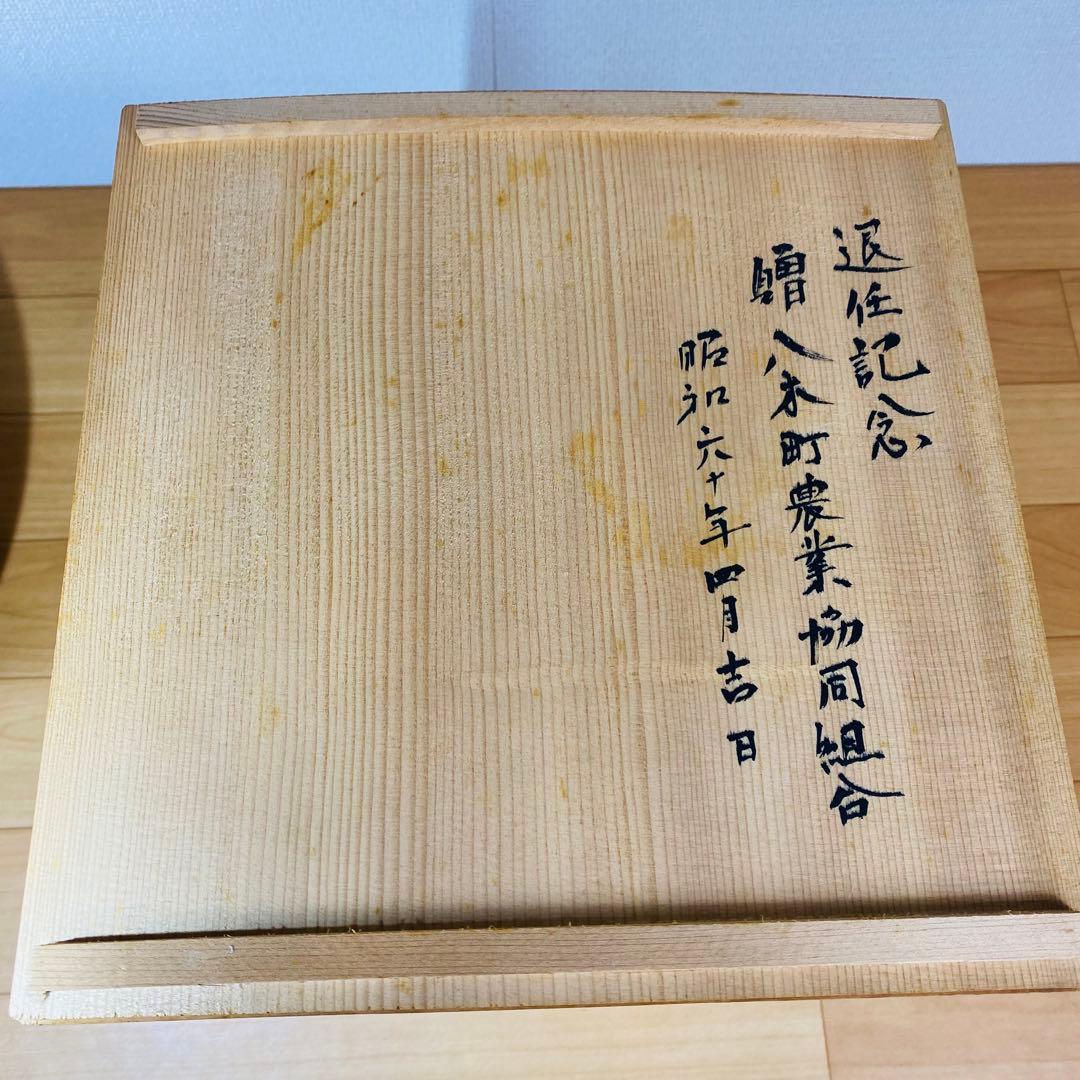 退任記念
贈 八木町農業協同組合
昭和六十年四月吉日